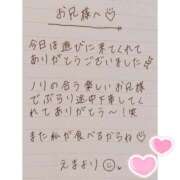 お兄様へ♡
今日は遊びに来てくれて
ありがとうございました
ノリの合う楽しいお兄様
でぶらり途中下車してく
れてありがとう〜!笑
また私が食べるからね♡
えまより☺